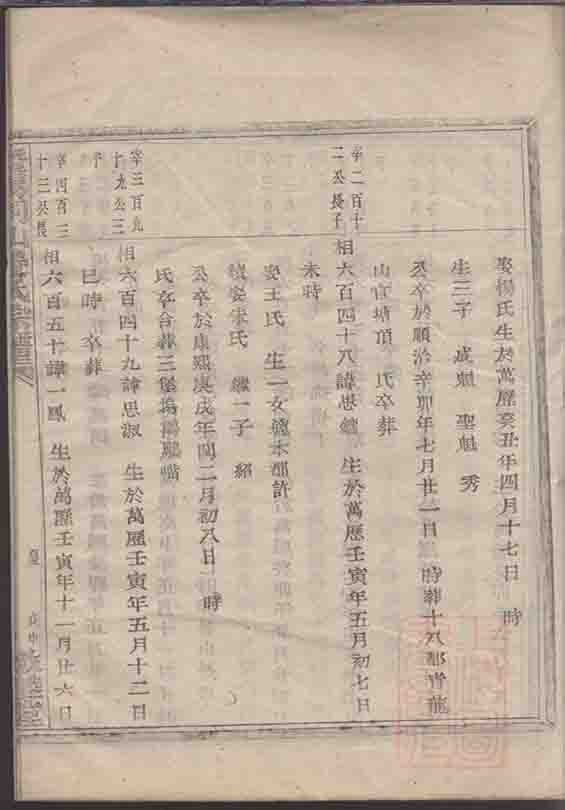 娶楊氏生於萬歷癸丑年四月十七日 時
生三子 成魁 聖魁 秀
公卒於順治辛卯年七月廿一日 時葬十八都青龍
山官塘頂 氏卒葬
宰二百十
二公長子
相六百四十八諱思 生於萬歷壬寅年五月初七日
未時
娶王氏 生一女適木都許
續娶宋氏 繼一子 紹
公卒於康熙庚戌年閏二月初八日 時
氏卒合葬三堡塢 嘴
宰三百九
十九公三
子
相六百四十九諱思淑 生於萬歷壬寅年五月十二日
巳時 卒葬
宰四百三
十三公長
相六百五十諱一鳳 生於萬歷壬寅年十一月廿六日